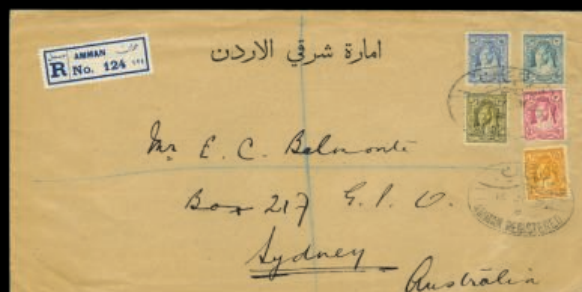 AMMAN
R No. 124 ١٢٤
امارة شرقي الاردن
Mr E. C. Belmonte
Box 217 G. P. O.
Sydney
Australia
AMMAN REGISTERED